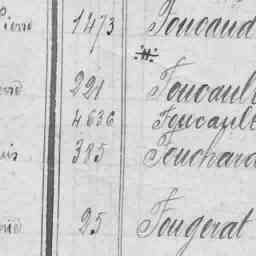 Pierre 1473 Foucaud
"
221 Foucault
4636 Foucault
385 Fouchard
25 Fougerat